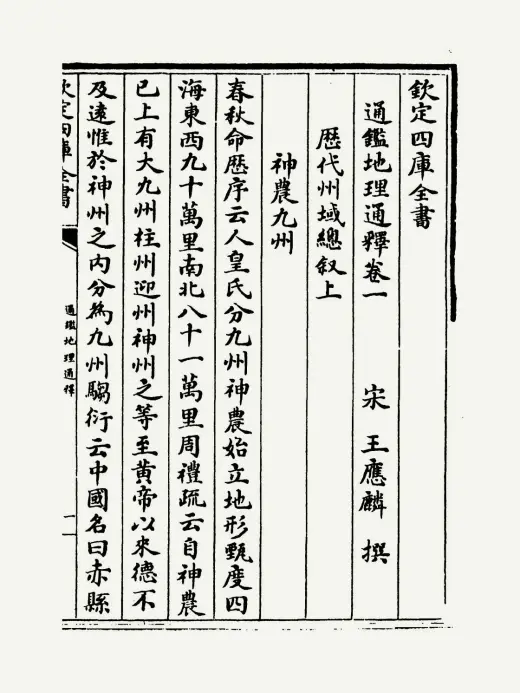 欽定四庫全書
通鑑地理通釋卷一　　宋　王應麟　撰
歴代州域總叙上
神農九州
春秋命歴序云人皇氏分九州神農始立地形甄度四
海東西九十萬里南北八十一萬里周禮疏云自神農
已上有大九州柱州迎州神州之等至黄帝以來德不
及逺惟於神州之内分為九州騶衍云中國名曰赤縣
欽定四庫全書
通鑑地理通釋
一